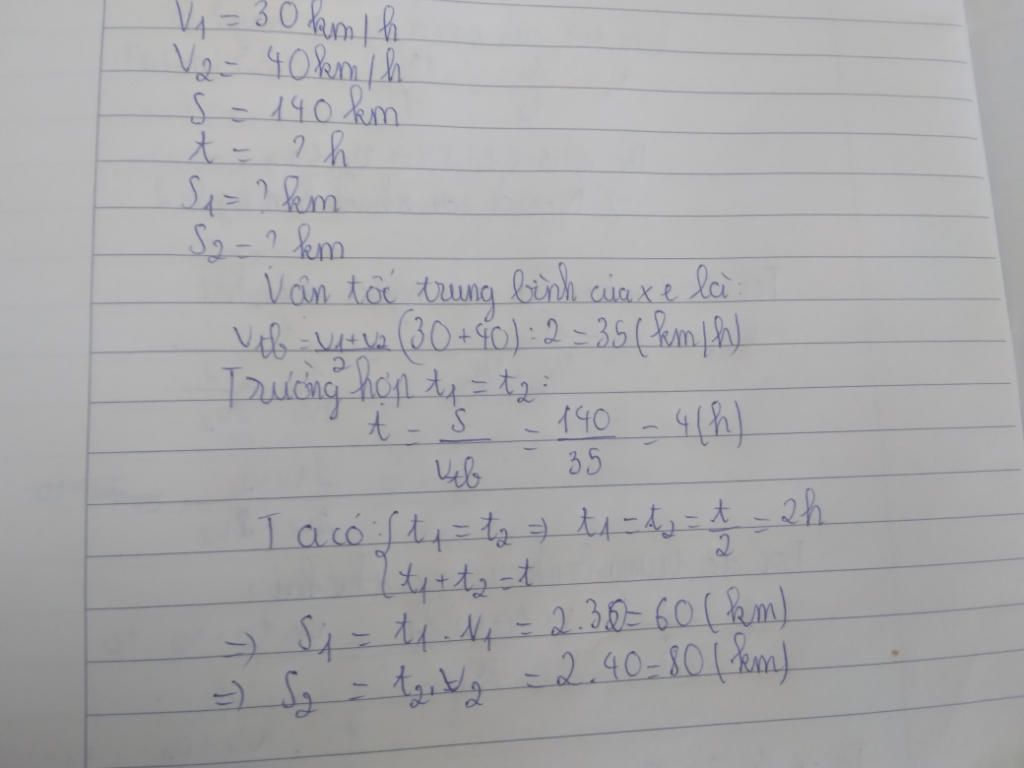 V1 = 30 km/h
V2 = 40 km/h
S = 140 km
t = ? h
S1 = ? km
S2 = ? km
Vân tốc trung bình của xe là:
Vtb = V1+V2/2 (30+40) : 2 = 35 (km/h)
Trường hợp t1 = t2 :
t = S/Vtb = 140/35 = 4 (h)
Ta có : { t1 = t2 => t1 = t2 = t/2 = 2h
{ t1 + t2 = t
=> S1 = t1 . V1 = 2.30 = 60 (km)
=> S2 = t2 . V2 = 2.40 = 80 (km)